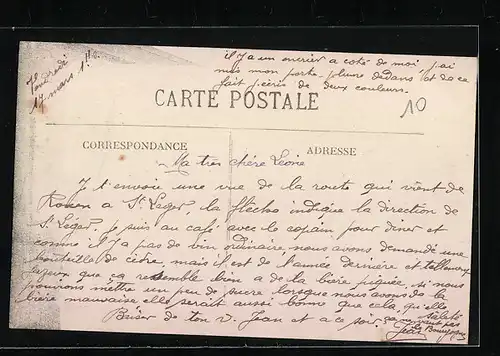 Vendredi
17 mars 1
il y a un encrier a coté de moi j'ai
mis mon porte plume dedans et de ce
fait j'écris de deux couleurs.
CARTE POSTALE
10
CORRESPONDANCE
ADRESSE
Ma très chère Léonie
Je t'envoie une vue de la route qui vient de
Rouen a St Leger, la flèche indique la direction de
St Léger. je suis au café avec le copain pour diner et
comme il y a pas de vin ordinaire nous avons demandé une
bouteille de cidre, mais il est de l'année dernière et tellement
que ça resemble bien a de la bière piquée, si nous
pourions mettre un peu de sucre lorsque nous avons de la
bière mauvaise elle serait aussi bonne que cela, qu'elle
saleté
ça ne vaut pas
le Bourgogne
Baiser de ton Jean et a ce soir.
Jean